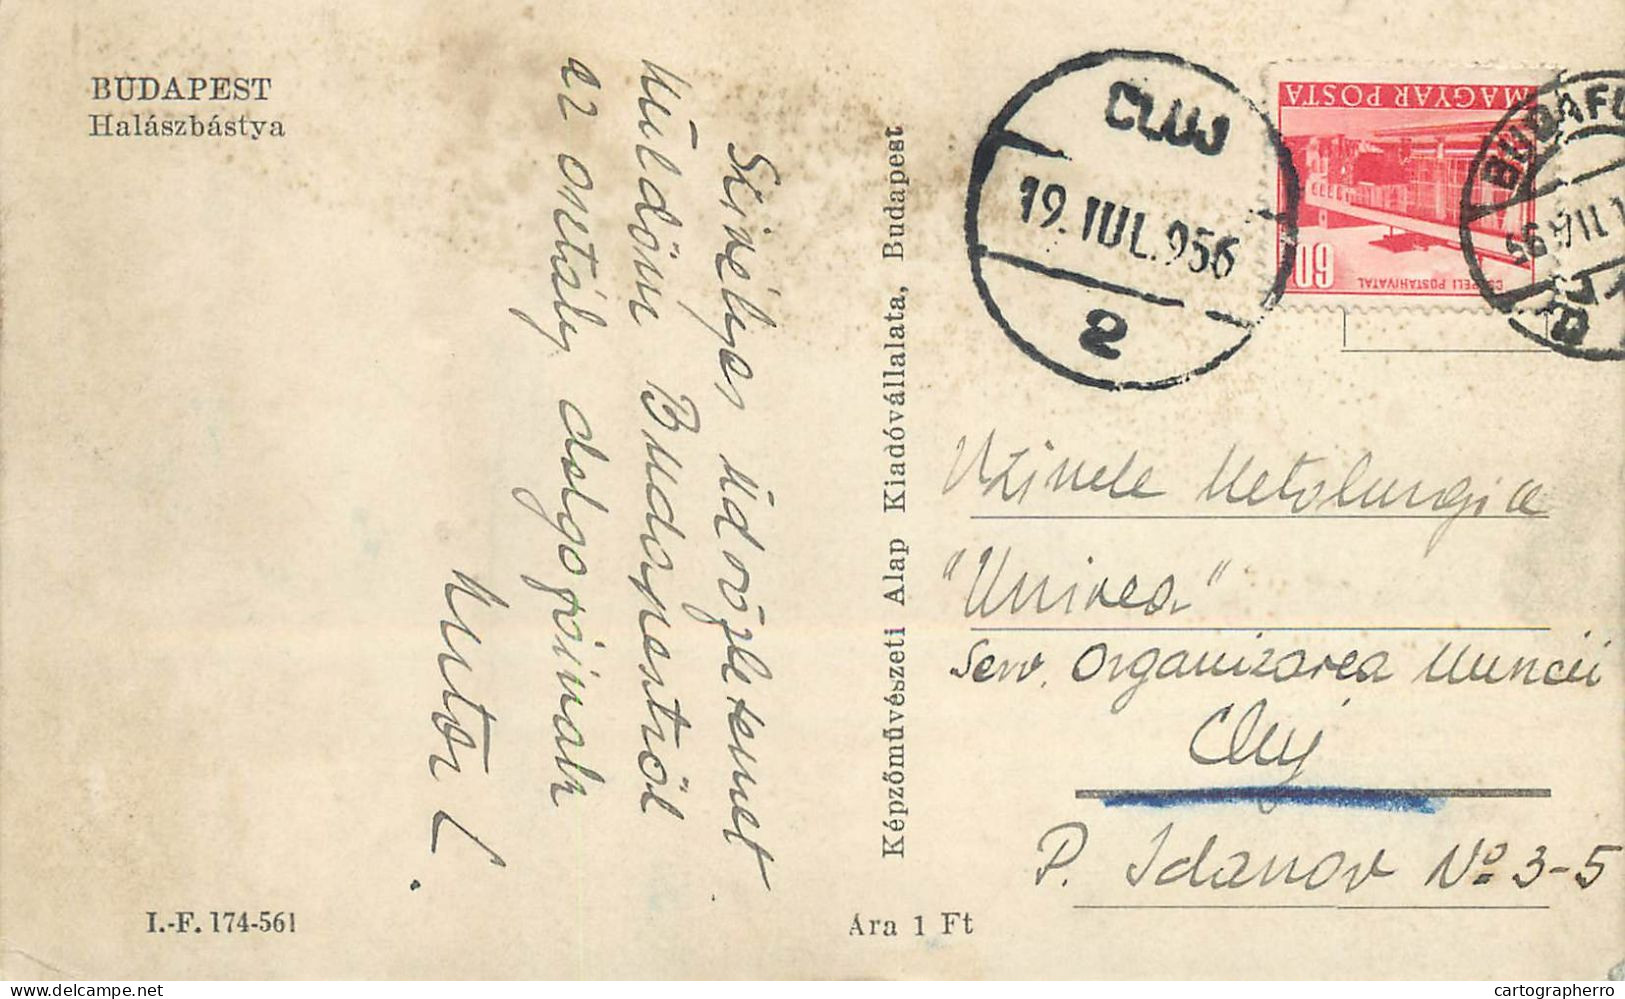 BUDAPEST
Halászbástya
Szivélyes üdvözletemet
küldöm Budapestről
az osztály dolgozóinak
I.-F. 174-561
Képzőművészeti Alap Kiadóvállalata, Budapest
Ára 1 Ft
CLUJ
19. IUL. 956
2
MAGYAR POSTA
60
CSEPELI POSTAHIVATAL
BUDAFO
56 VII 1
Uzinele Metalurgice
"Unirea"
Serv. Organizarea Muncii
Cluj
P. Jdanov Nº 3-5
www.delcampe.net
cartographerro